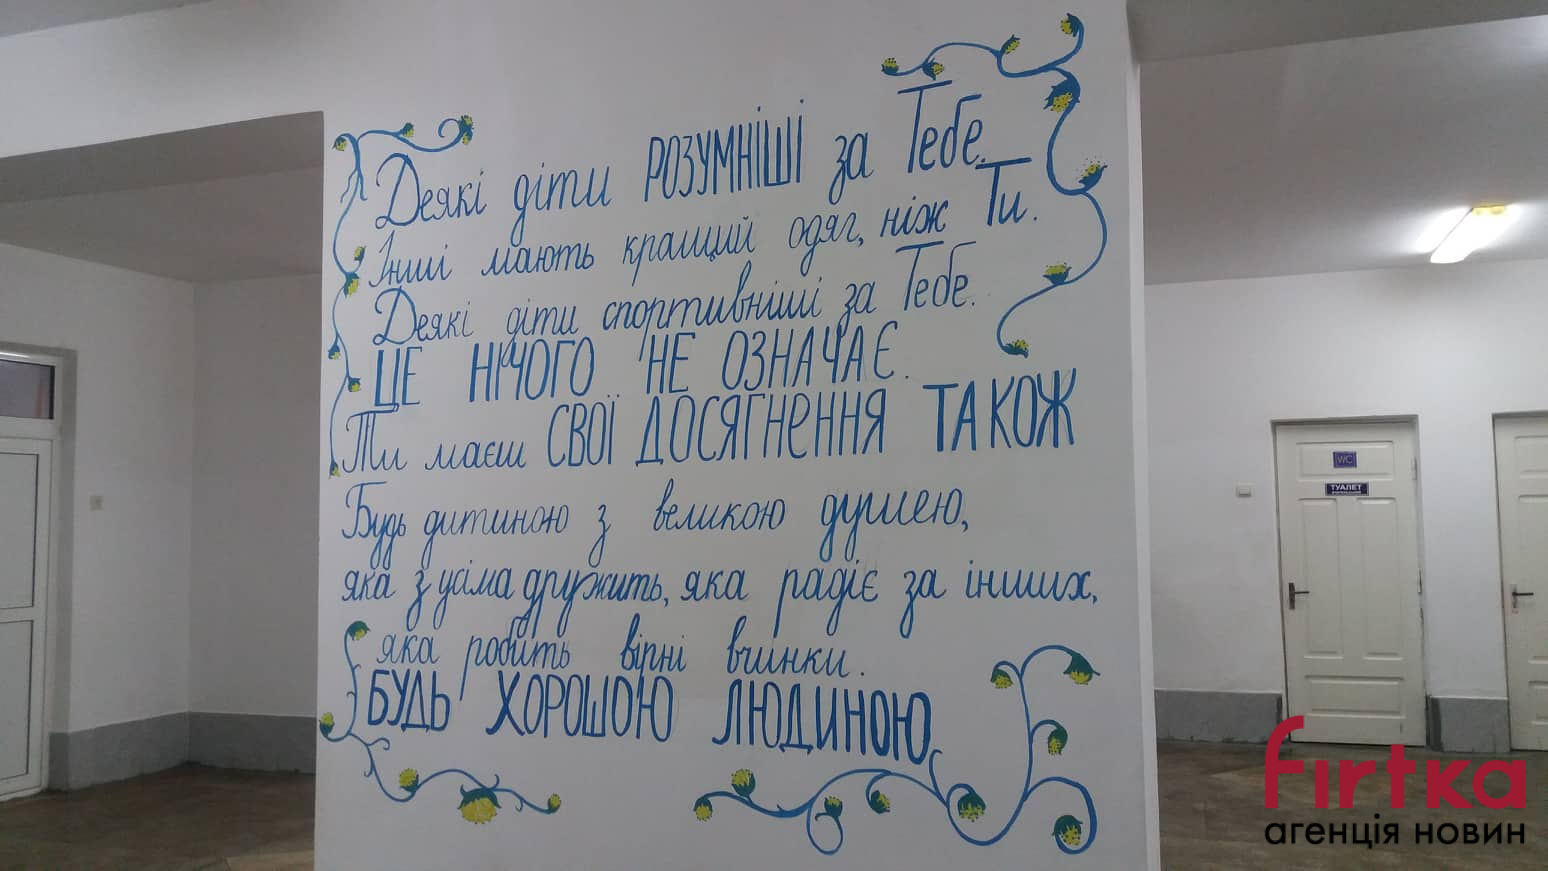 Деякі діти РОЗУМНІШІ за Тебе.
Інші мають кращий одяг, ніж Ти.
Деякі діти спортивніші за Тебе.
ЦЕ НІЧОГО НЕ ОЗНАЧАЄ.
Ти маєш СВОЇ ДОСЯГНЕННЯ ТАКОЖ
Будь дитиною з великою душею,
яка з усіма дружить, яка радіє за інших,
яка робить вірні вчинки.
БУДЬ ХОРОШОЮ ЛЮДИНОЮ.
WC
ТУАЛЕТ
firtka
агенція новин